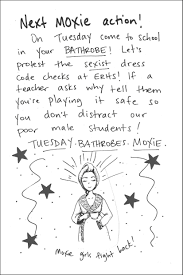 Next MOXIE action!
On Tuesday come to school
in your BATHROBE! Let's
protest the sexist dress
code checks at ERHS! If a
teacher asks why tell them
you're playing it safe so
you don't distract our
poor male students!
TUESDAY. BATHROBES. MOXIE.
Moxie girls fight back!